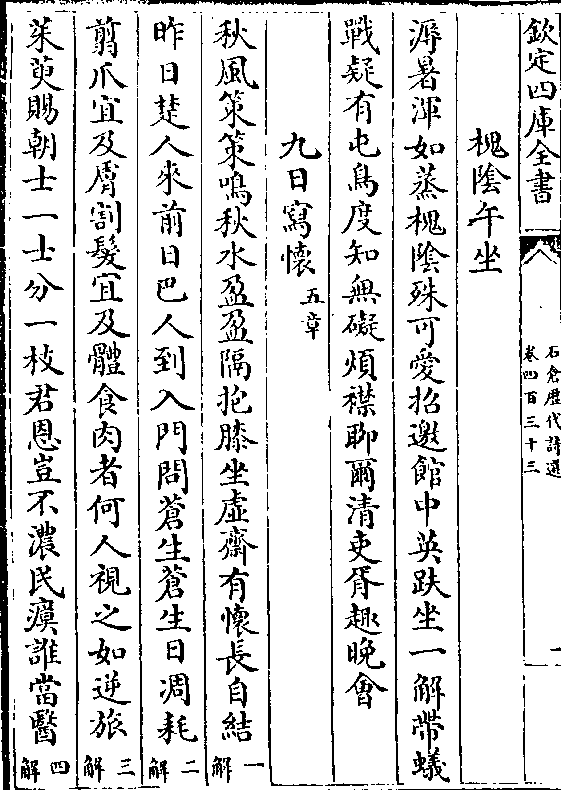 欽定四庫全書
石倉歷代詩選
卷四百三十三
槐陰午坐
溽暑渾如蒸槐陰殊可愛招邀館中英趺坐一解帶蟻
戰疑有屯鳥度知無礙煩襟聊爾清吏胥趣晚會
九日寫懷五章
秋風策策鳴秋水盈盈隔抱膝坐虛齋有懷長自結一解
昨日楚人來前日巴人到入門問蒼生蒼生日凋耗二解
翦爪宜及膚割髮宜及體食肉者何人視之如逆旅三解
茱萸賜朝士一士分一枝君恩豈不濃民瘼誰當醫四解